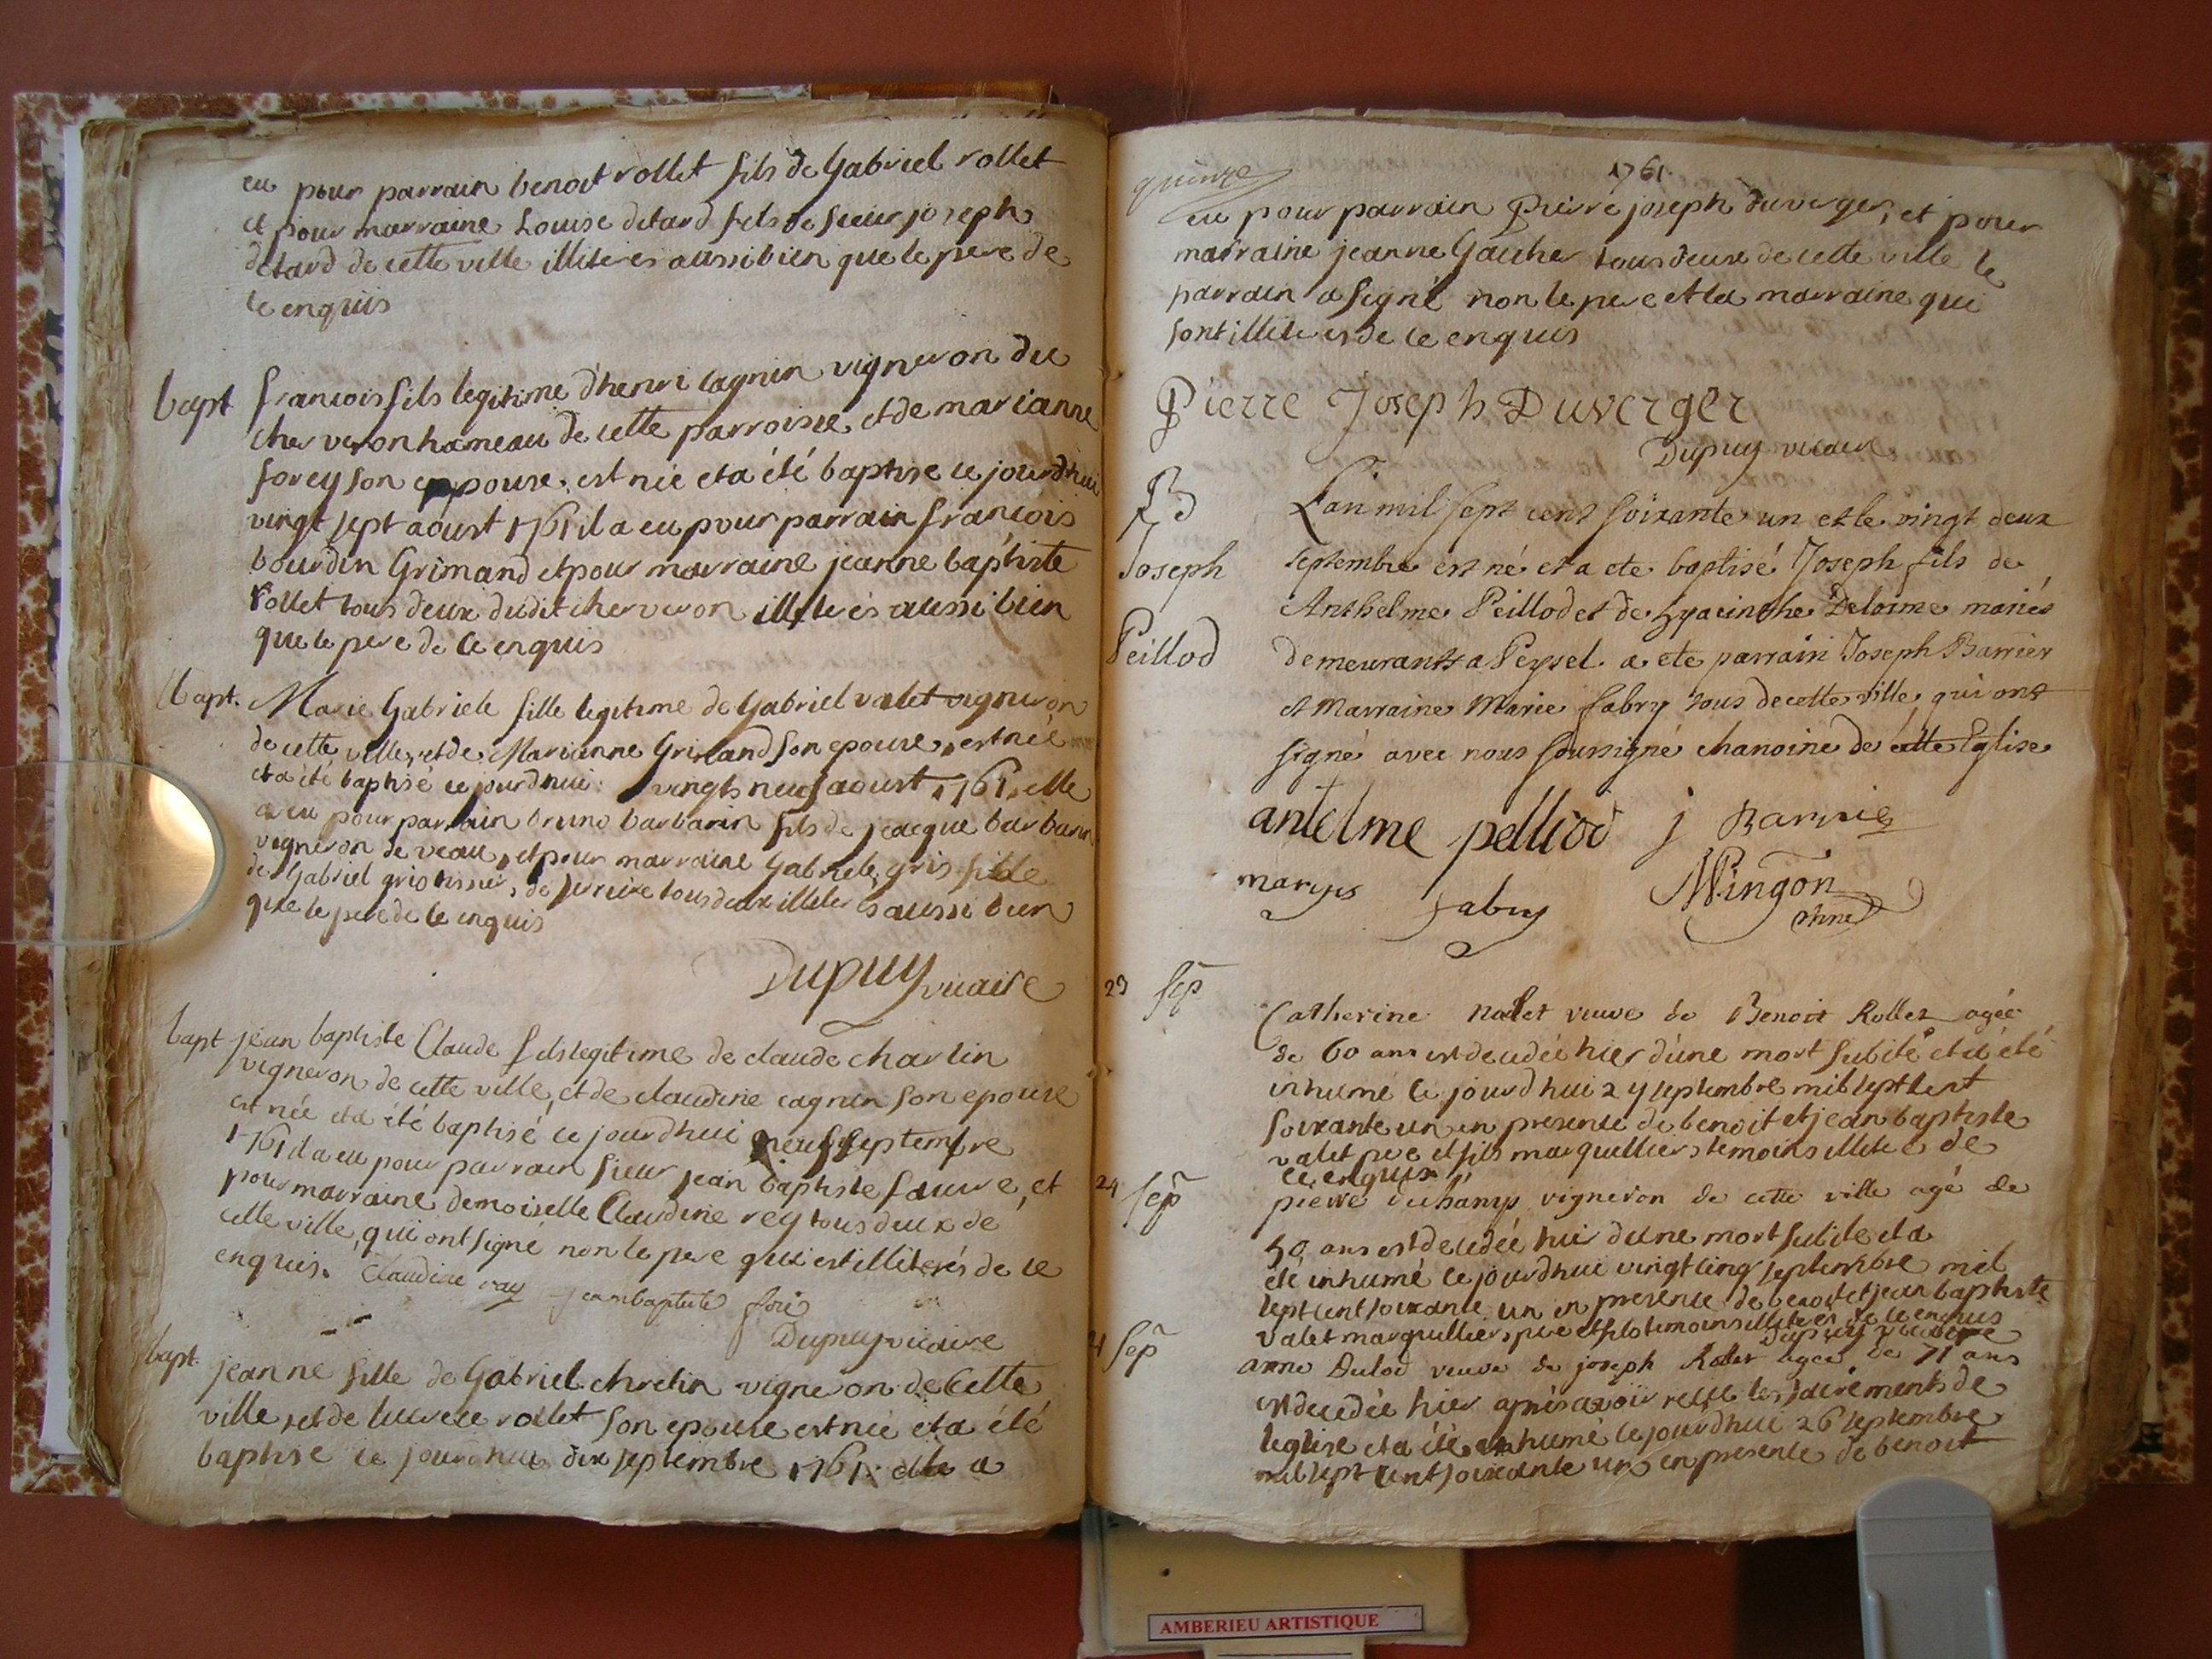 eu pour parrain benoit rollet fils de Gabriel rollet
et pour marraine Louise detard fils de sieur joseph
detard de cette ville illiterés aussi bien que le pere de
ce enquis
bapt françois fils legitime d'henri cagnin vigneron du
cherveron hameau de cette parroisse, et de marianne
sorey son epouse, est née et a été baptise ce jourdhui
vingt sept aôust 1761 il a eu pour parrain françois
bourdin Grimand et pour marraine jeanne baptiste
rollet tous deux dudit cherveron illiterés aussi bien
que le pere de ce enquis
bapt. Marie Gabriele fille legitime de Gabriel valet vigneron
de cette ville, et de Marianne Grimand son epouse, est née
et a été baptisé ce jourdhui vingts neuf aoust 1761, elle
a eu pour parrain bruno barbarin fils de jacque barbarin
vigneron de veau, et pour marraine Gabriele gris fille
de Gabriel gris tissier, de tous deux illiterés aussi bien
que le pere de ce enquis
Dupuy vicaire
bapt jean baptiste Claude fils legitime de claude charlin
vigneron de cette ville, et de claudine cagnin son epouse
est née et a été baptisé ce jourdhui neuf septembre
1761 il a eu pour parrain sieur jean baptiste faure, et
pour marraine demoiselle Claudine rey tous deux de
cette ville, qui ont signé non le pere qui est illiterés de ce
enquis. Claudine ray jeanbaptiste
Dupuy vicaire
bapt. jeanne fille de Gabriel chretin vigneron de Cette
ville, et de lucrece rollet son epouse est née et a été
baptise ce jourdhui dix septembre 1761. elle a
quinze
1761.
eu pour parrain Pierre joseph duverger, et pour
marraine jeanne Gauher tous deux de cette ville le
parrain a signé non le pere et la marraine qui
sont illiterés de ce enquis
Pierre Joseph Duverger
Dupuy vicaire
B L'an mil sept cent soixante un et le vingt deux
Joseph septembre est né et a ete baptisé Joseph fils de
Anthelme Peillod et de hyacinthe Delorme mariés
Peillod demeurants a Peysel. a ete parrain Joseph Barrier
et Marraine Marie fabry tous de cette ville qui ont
signé avec nous soussigné chanoine de cette Eglise
antelme pelliod j Barrie
maryes fabry Mingon
chne
23 sep
Catherine valet veuve de Benoit Rollet agée
de 60 ans est decedée hier d'une mort subite et a été
inhumé ce jourdhui 24 septembre mil sept cent
soixante un en presence de benoit et jean baptiste
valet pere et fils marguilliers temoins illiteré de
ce enquis
24 sep pierre duchamp vigneron de cette ville agé de
50 ans est decedée hier d'une mort subite et a
été inhumé ce jourdhui vingt cinq septembre mil
sept cent soixante un en presence de benoit et jean baptiste
valet marguilliers pere et fils temoins illiterés de ce enquis
Dupuy vicaire
sep anne Dulod veuve de joseph Rollet agée de 71 ans
est decedée hier après avoir reçu les sacrements de
leglise et a été inhumé ce jourdhui 26 septembre
mil sept cent soixante un en presence de benoit
AMBERIEU ARTISTIQUE